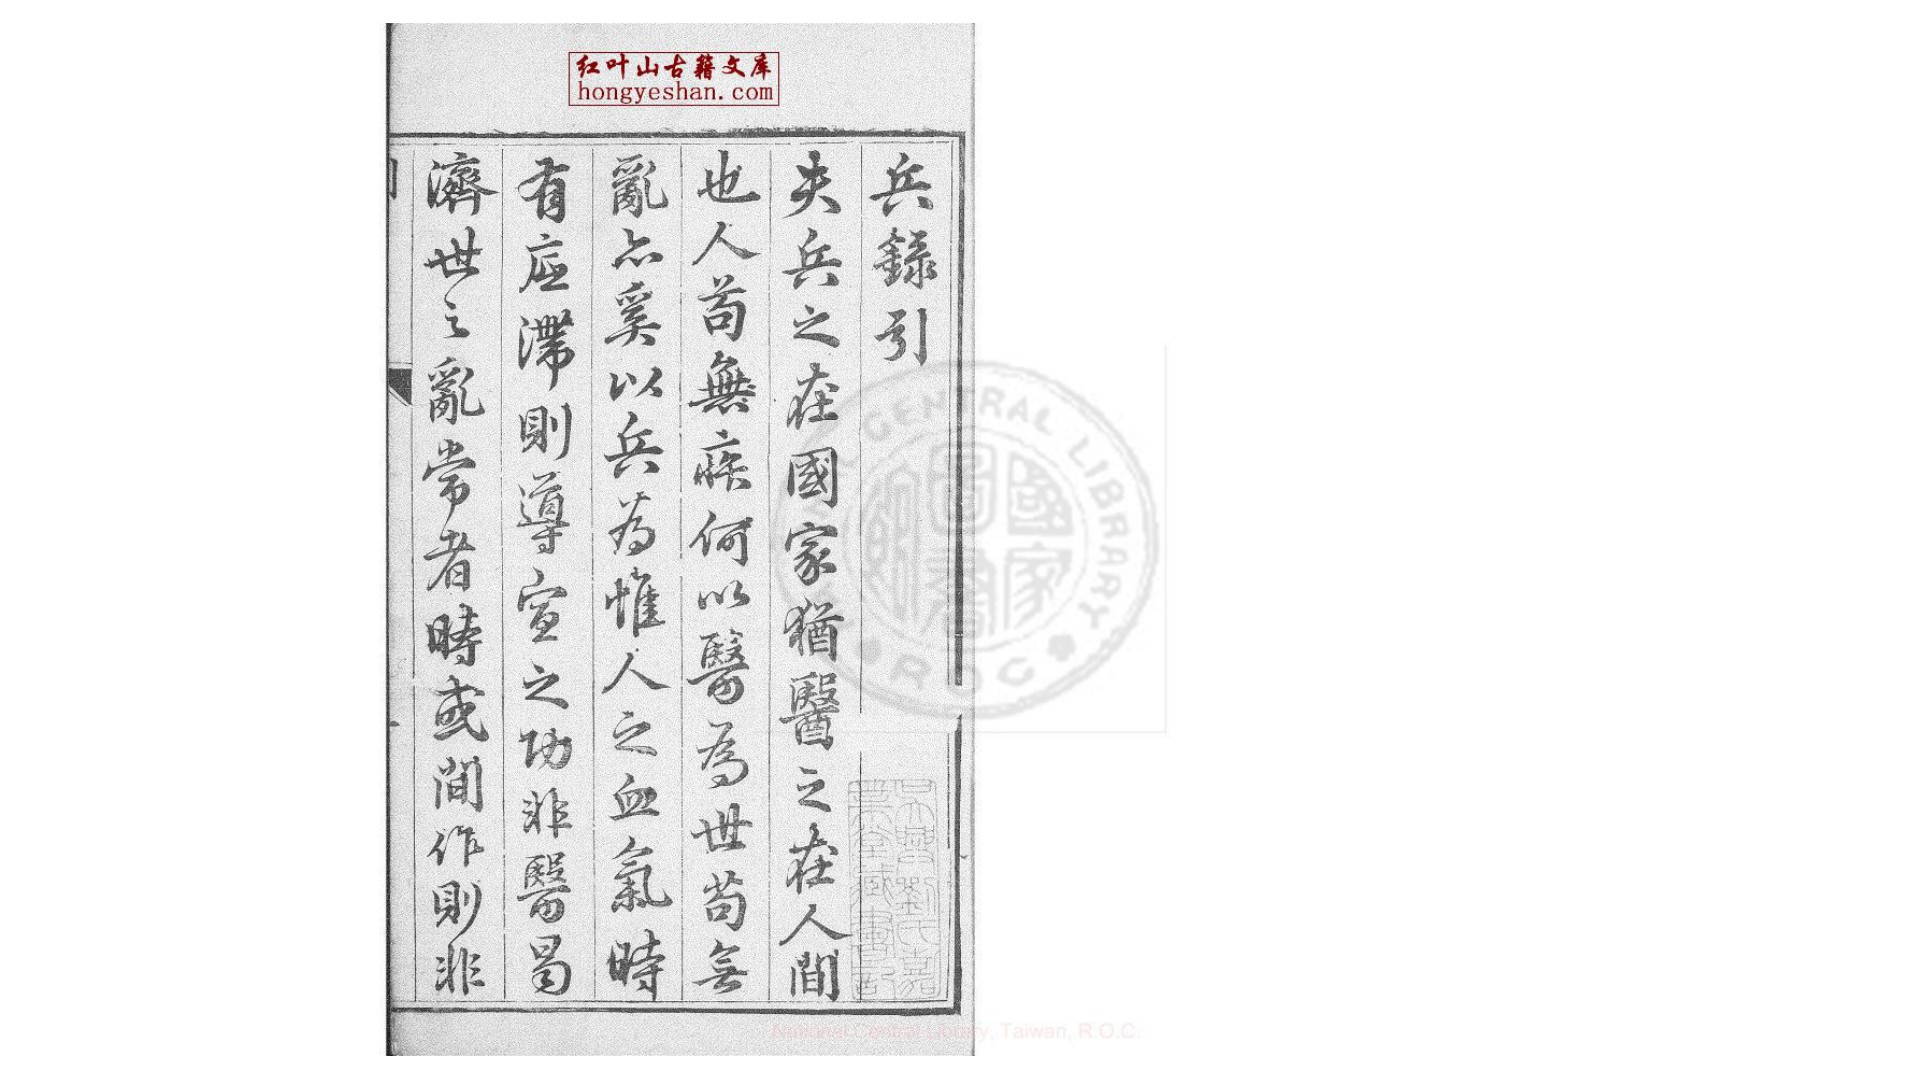 红叶山古籍文库
hongyeshan.com
兵錄引
夫兵之在國家猶醫之在人間
也人苟無疾何以醫為世苟無
亂亦奚以兵為惟人之血氣時
有底滯則導宣之功非醫曷
濟世之亂常者時或間作則非
吳興劉氏嘉
業堂藏書記
國家圖書館
CENTRAL LIBRARY
ROC
National Central Library, Taiwan, R.O.C.